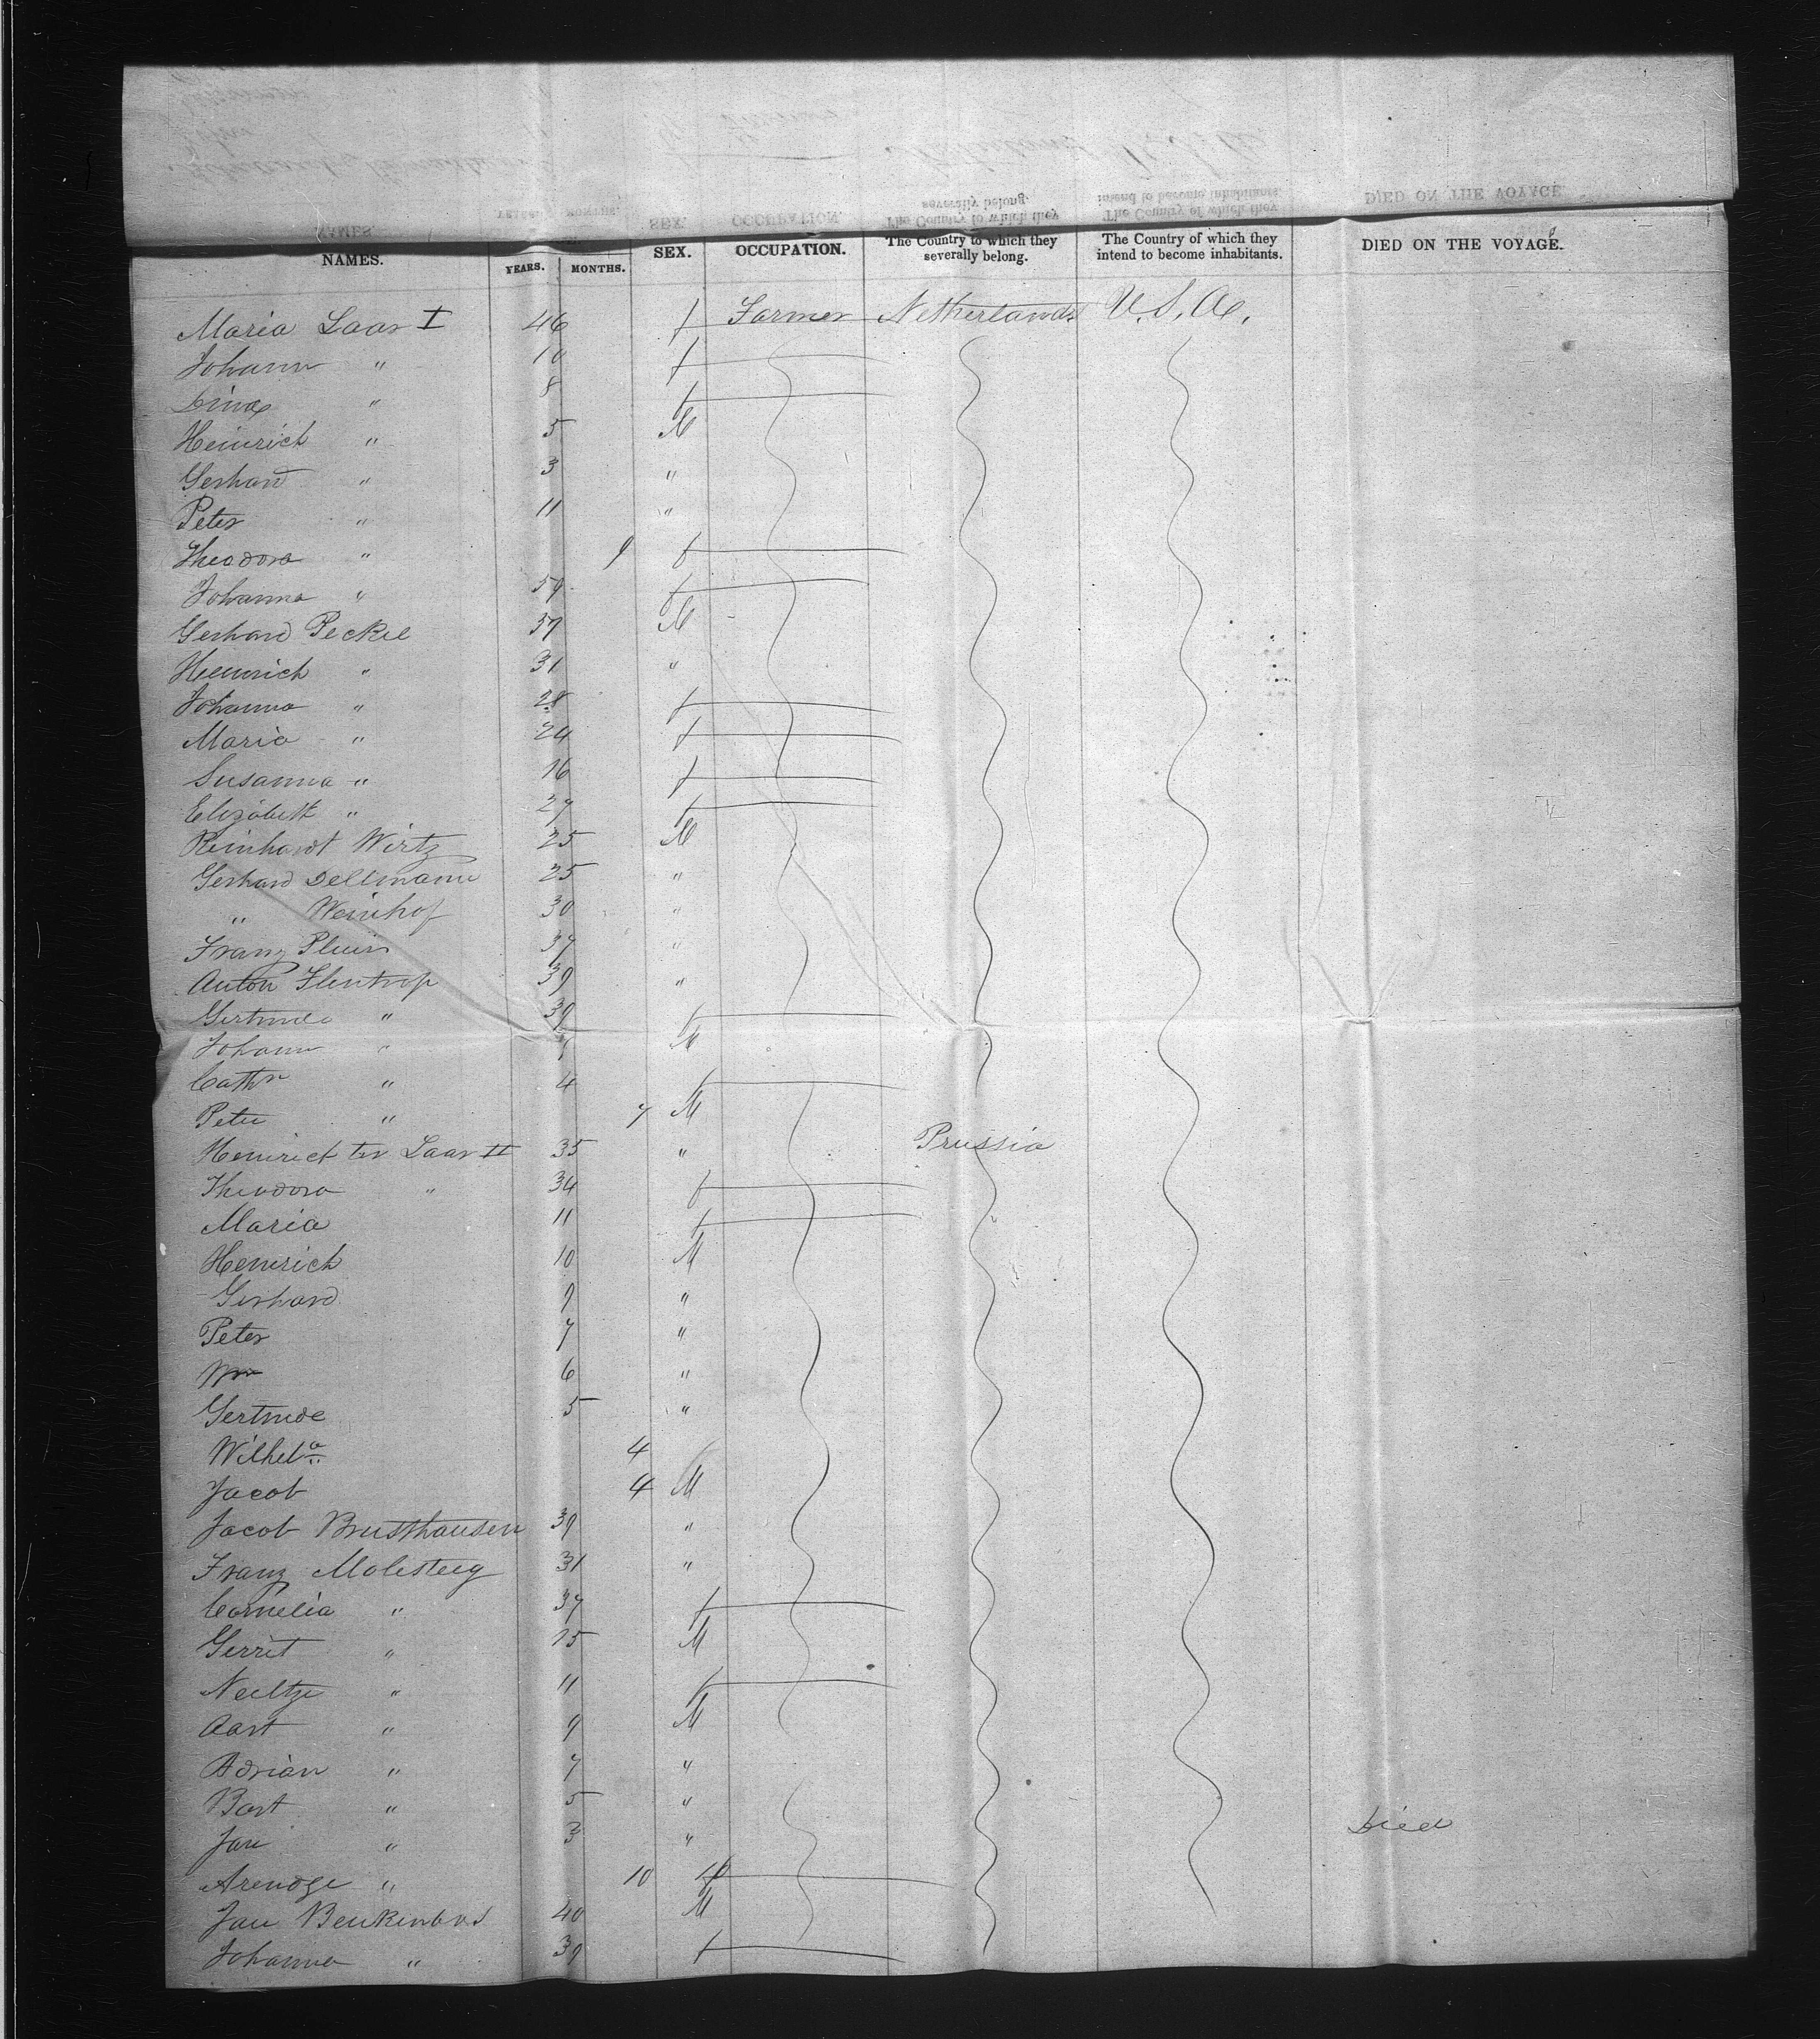 NAMES. YEARS. MONTHS. SEX. OCCUPATION. The Country to which they severally belong. The Country of which they intend to become inhabitants. DIED ON THE VOYAGE.
Maria Laar I 46 f Farmer Netherlands U.S.A.
Johann " 10 f
Dina " 8 f
Heinrich " 5 M
Gerhard " 3 "
Peter " 11 "
Theodora " 9 f
Johanna " 59 f
Gerhard Peckel 37 M
Heinrich " 31 "
Johanna " 28 f
Maria " 24 f
Susanna " 16 f
Elizabeth " 27 f
Reinhardt Wirtz 25 M
Gerhard Dellmann 25 "
" Weinhof 30 "
Franz 37 "
Anton Flintrop 39 "
Gertrude " 39 f
Johann " M
Cathn " 4 f
Peter " 7 M
Heinrich ter Laar II 35 " Prussia
Theodora " 34 f
Maria 11 f
Heinrich 10 M
Gerhard 9 "
Peter 7 "
Wm 6 "
Gertrude 5 "
Wilhela 4
Jacob 4 M
Jacob Brusthausen 39 "
Franz Molesteeg 31 "
Cornelia " 37 f
Gerrit " 15 M
Neeltje " 11 f
Aart " 9 M
Adrian " 7 "
Bart " 5 "
Jan " 3 " Died
Arendge " 10 f
Jan Beukenbos 40 M
Johanna " 39 f